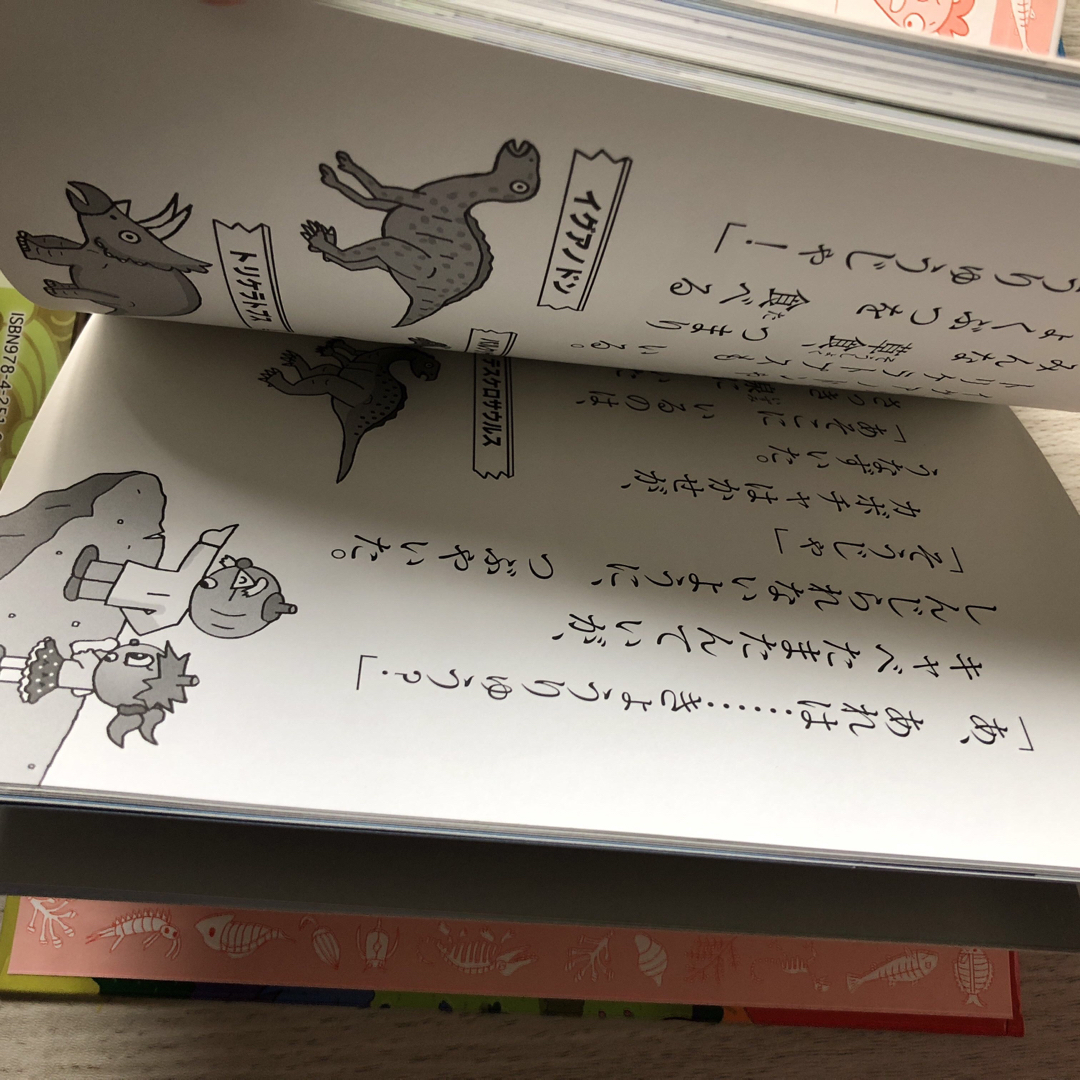 「あ、あれは……きょうりゅう?」
キャベたまたんていが、
しんじられないように、つぶやいた。
「そうじゃ」
カボチャはかせが、
うなずいた。
「あそこに いるのは、
テスケロサウルス
みんな 草食、つまり
ょくぶつを 食べる
うりゅうじゃー!」
イグアノドン
トリケラトプス
ISBN978-4-251-